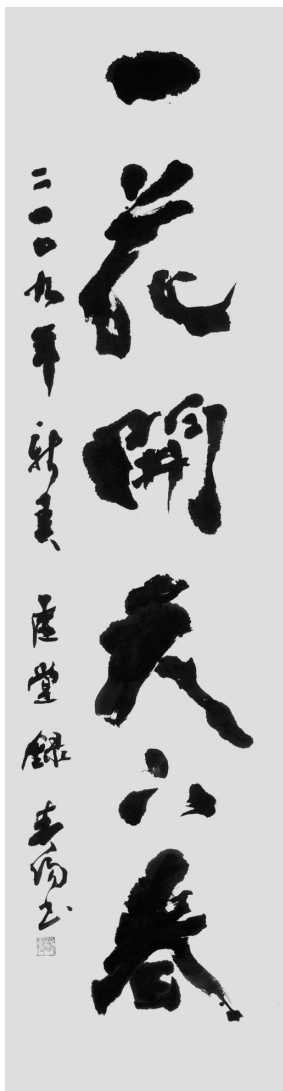 一花開天下春
二〇〇九年 新春 虚堂録 春陽書